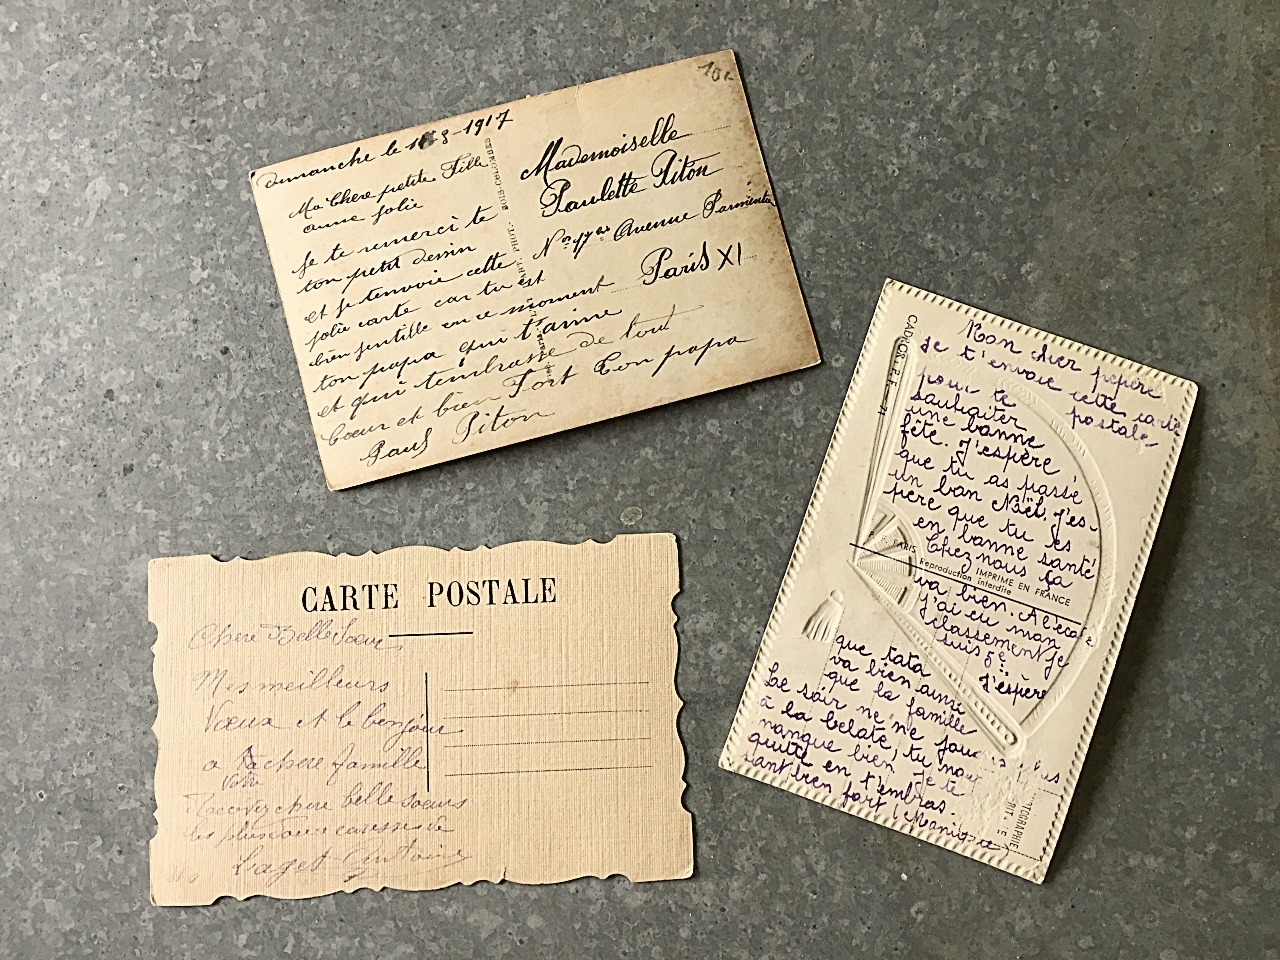 10c
Dimanche le 1 8-1917
Ma Chere petite Fille
Je te remerci te
ton petit dessin
et je t'envoie cette
jolie carte car tu est
bien gentille en ce moment
ton papa qui t'aime
et qui t'embrasse de tout
Coeur et bien Fort Ton papa
Paul Piton
BOIS-COLOMBES
Mademoiselle
Paulette Piton
Avenue Parmentier
Paris XI
CARTE POSTALE
Chere Belle Soeur
Mes meilleurs
Voeux et le bonjour
a chere famille
Vota
Recevez chere belle soeurs
les plus douce caresses de
Laget Antoine
Mon cher pépère
Je t'envoie cette carte
pour te postale
souhaiter
une bonne
fête. J'espère
que tu as passé
un bon Noël. J'es-
père que tu es
en bonne santé
Chez nous ça
va bien. A l'école
j'ai eu mon
classement je
suis 5e
J'espère
que tata
va bien ainsi
que la famille
Le soir ne ne joue plus
à la belate, tu nous
manque bien. Je te
quitte en t'embras-
sant bien fort
PARIS
IMPRIME EN FRANCE
Reproduction interdite